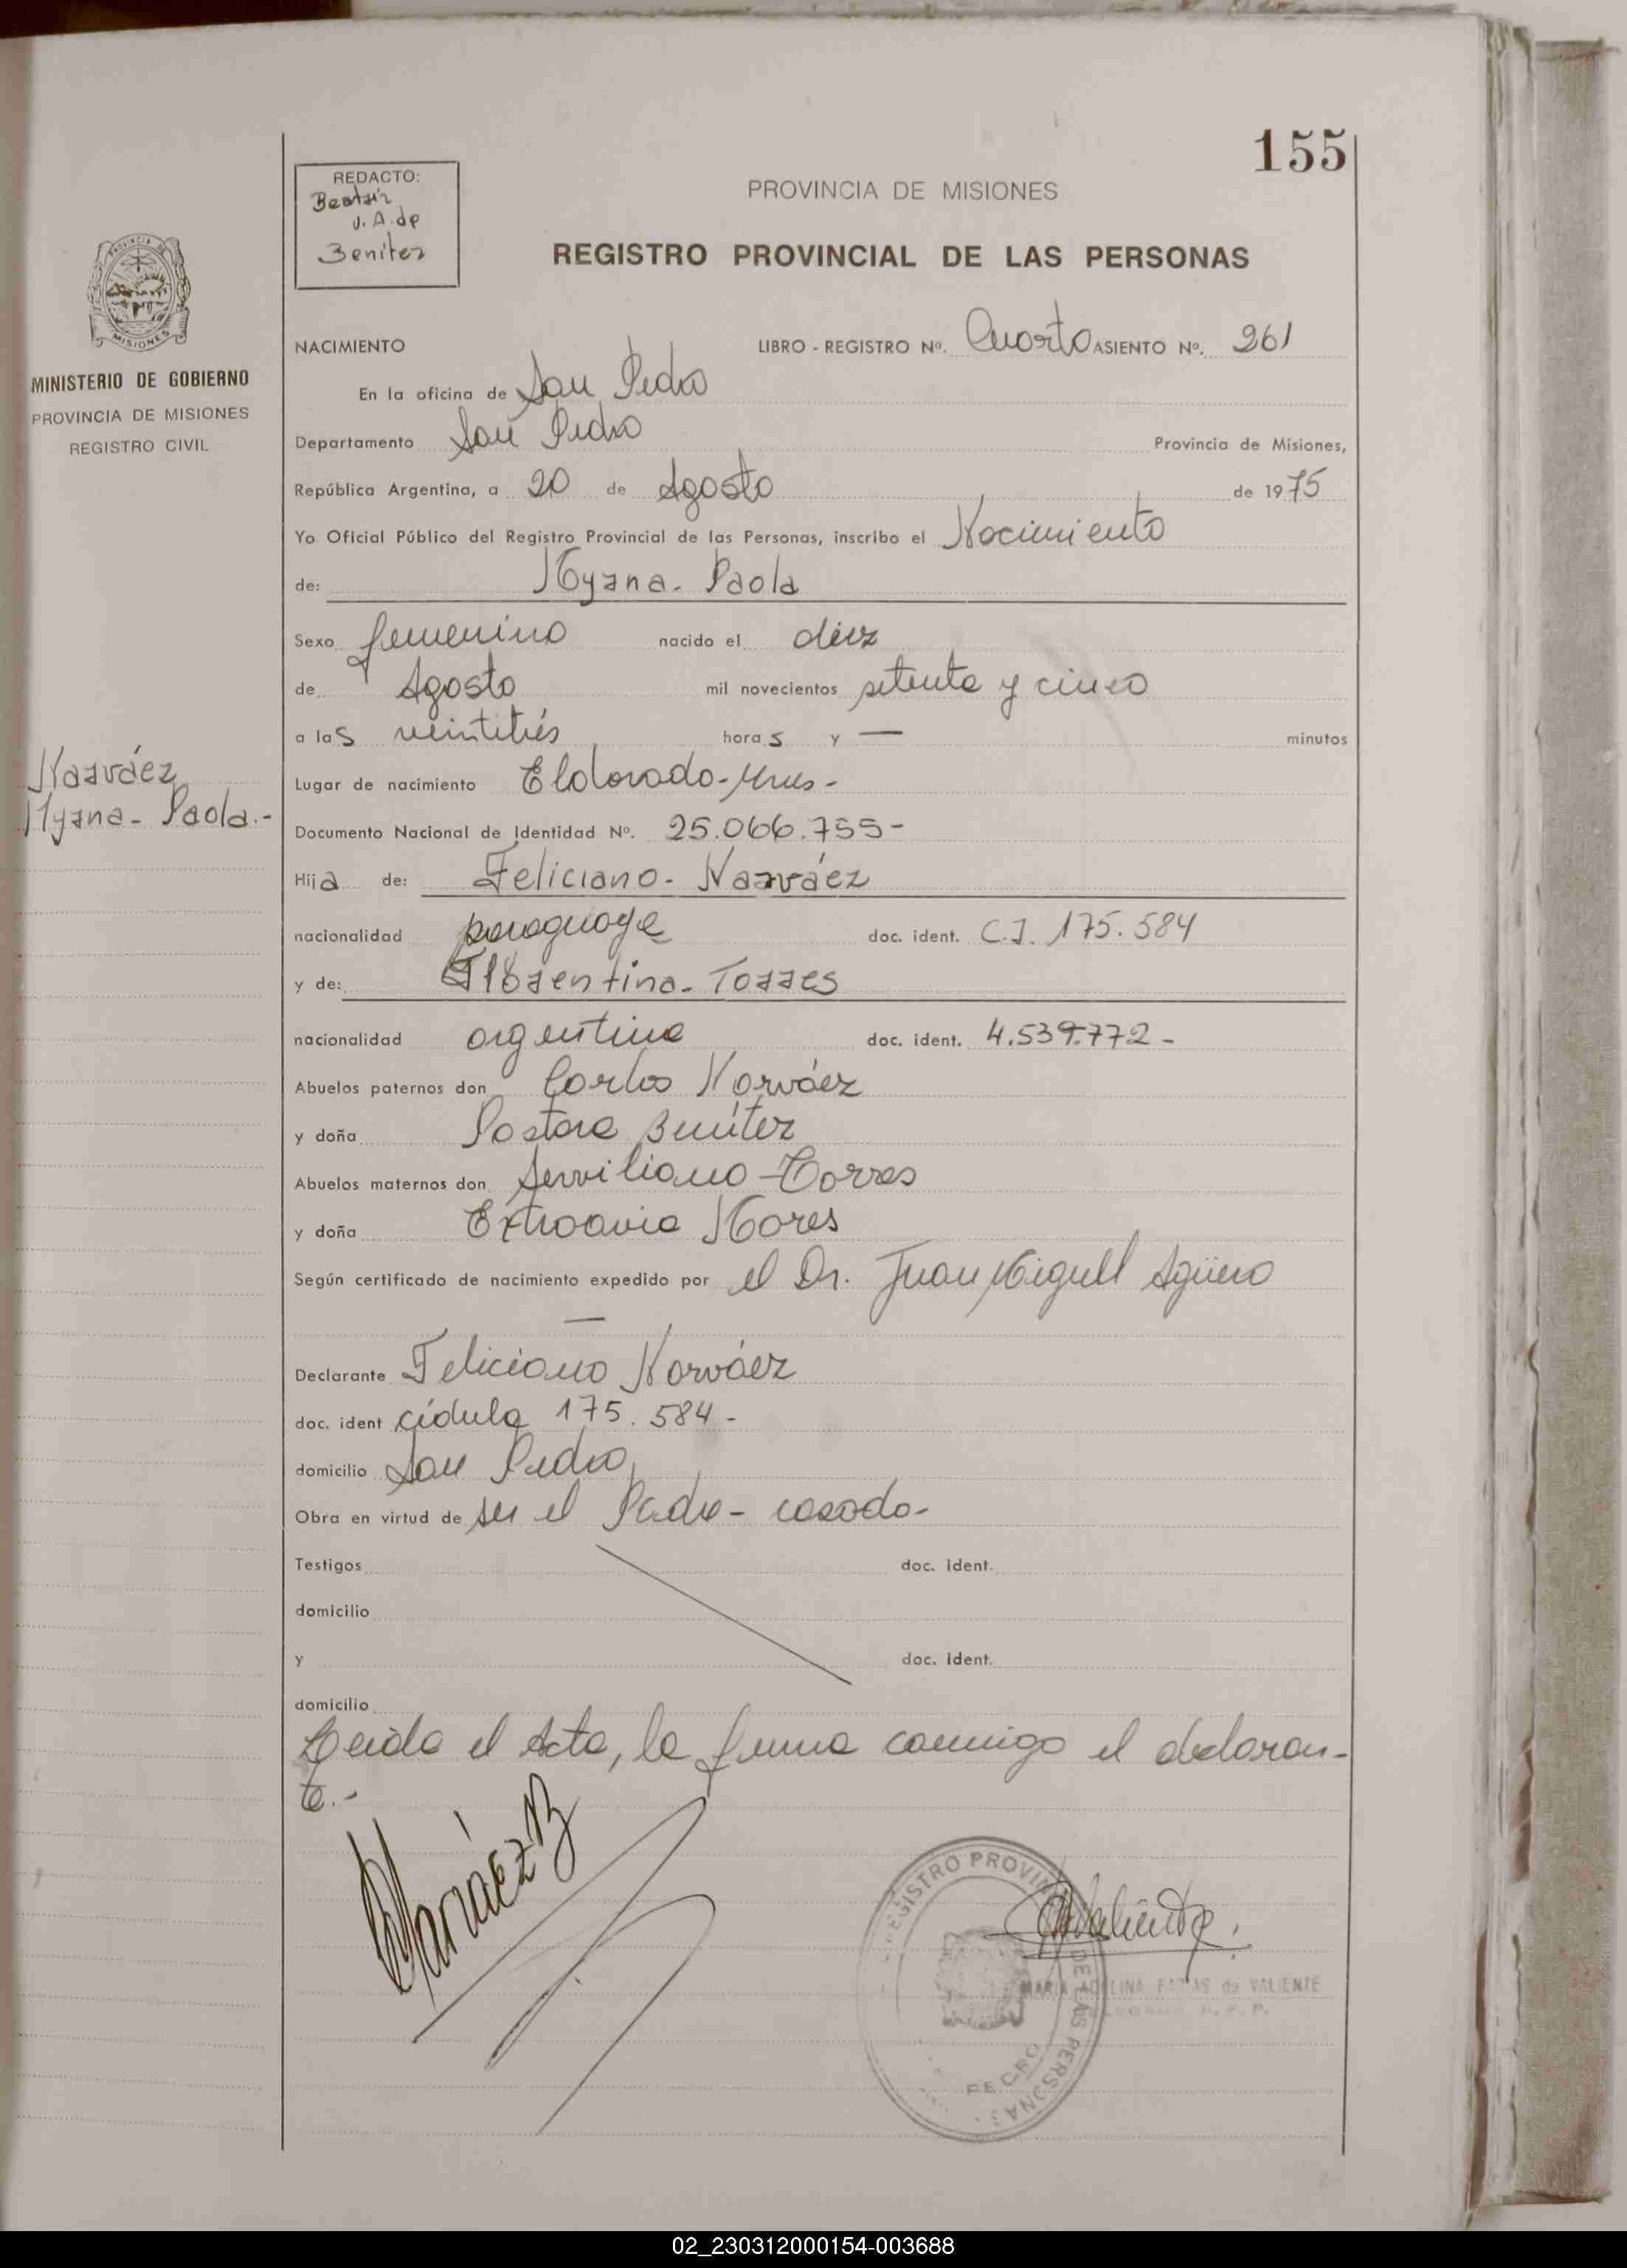 155
REDACTO:
Beatriz
v. A. de
Benitez
PROVINCIA DE MISIONES
REGISTRO PROVINCIAL DE LAS PERSONAS
MINISTERIO DE GOBIERNO
PROVINCIA DE MISIONES
REGISTRO CIVIL
NACIMIENTO LIBRO - REGISTRO Nº. Cuarto ASIENTO Nº. 261
En la oficina de San Pedro
Departamento San Pedro Provincia de Misiones,
República Argentina, a 20 de Agosto de 1975
Yo Oficial Público del Registro Provincial de las Personas, inscribo el Nacimiento
de: Myrna - Paola
Sexo femenino nacido el diez
de Agosto mil novecientos setenta y cinco
a las veintitrés horas y — minutos
Narváez
Myrna - Paola.-
Lugar de nacimiento Eldorado - Mnes -
Documento Nacional de Identidad Nº. 25.066.755-
Hija de: Feliciano - Narváez
nacionalidad paraguaya doc. ident. C.I. 175.584
y de: Florentina - Torres
nacionalidad argentina doc. ident. 4.539.772 -
Abuelos paternos don Carlos Narváez
y doña Pastora Benítez
Abuelos maternos don Serviliano - Torres
y doña
Según certificado de nacimiento expedido por el Dr. Juan Miguel Agüero
—
Declarante Feliciano Narváez
doc. ident cédula 175.584 -
domicilio San Pedro
Obra en virtud de ser el Padre - casado -
Testigos doc. ident.
domicilio
y doc. ident.
domicilio
Leida el Acta, la firma conmigo el declaran-
te.-
Narváez B
REGISTRO PROVIN DE LAS PERSONAS
Valiente
de VALIENTE
02_230312000154-003688